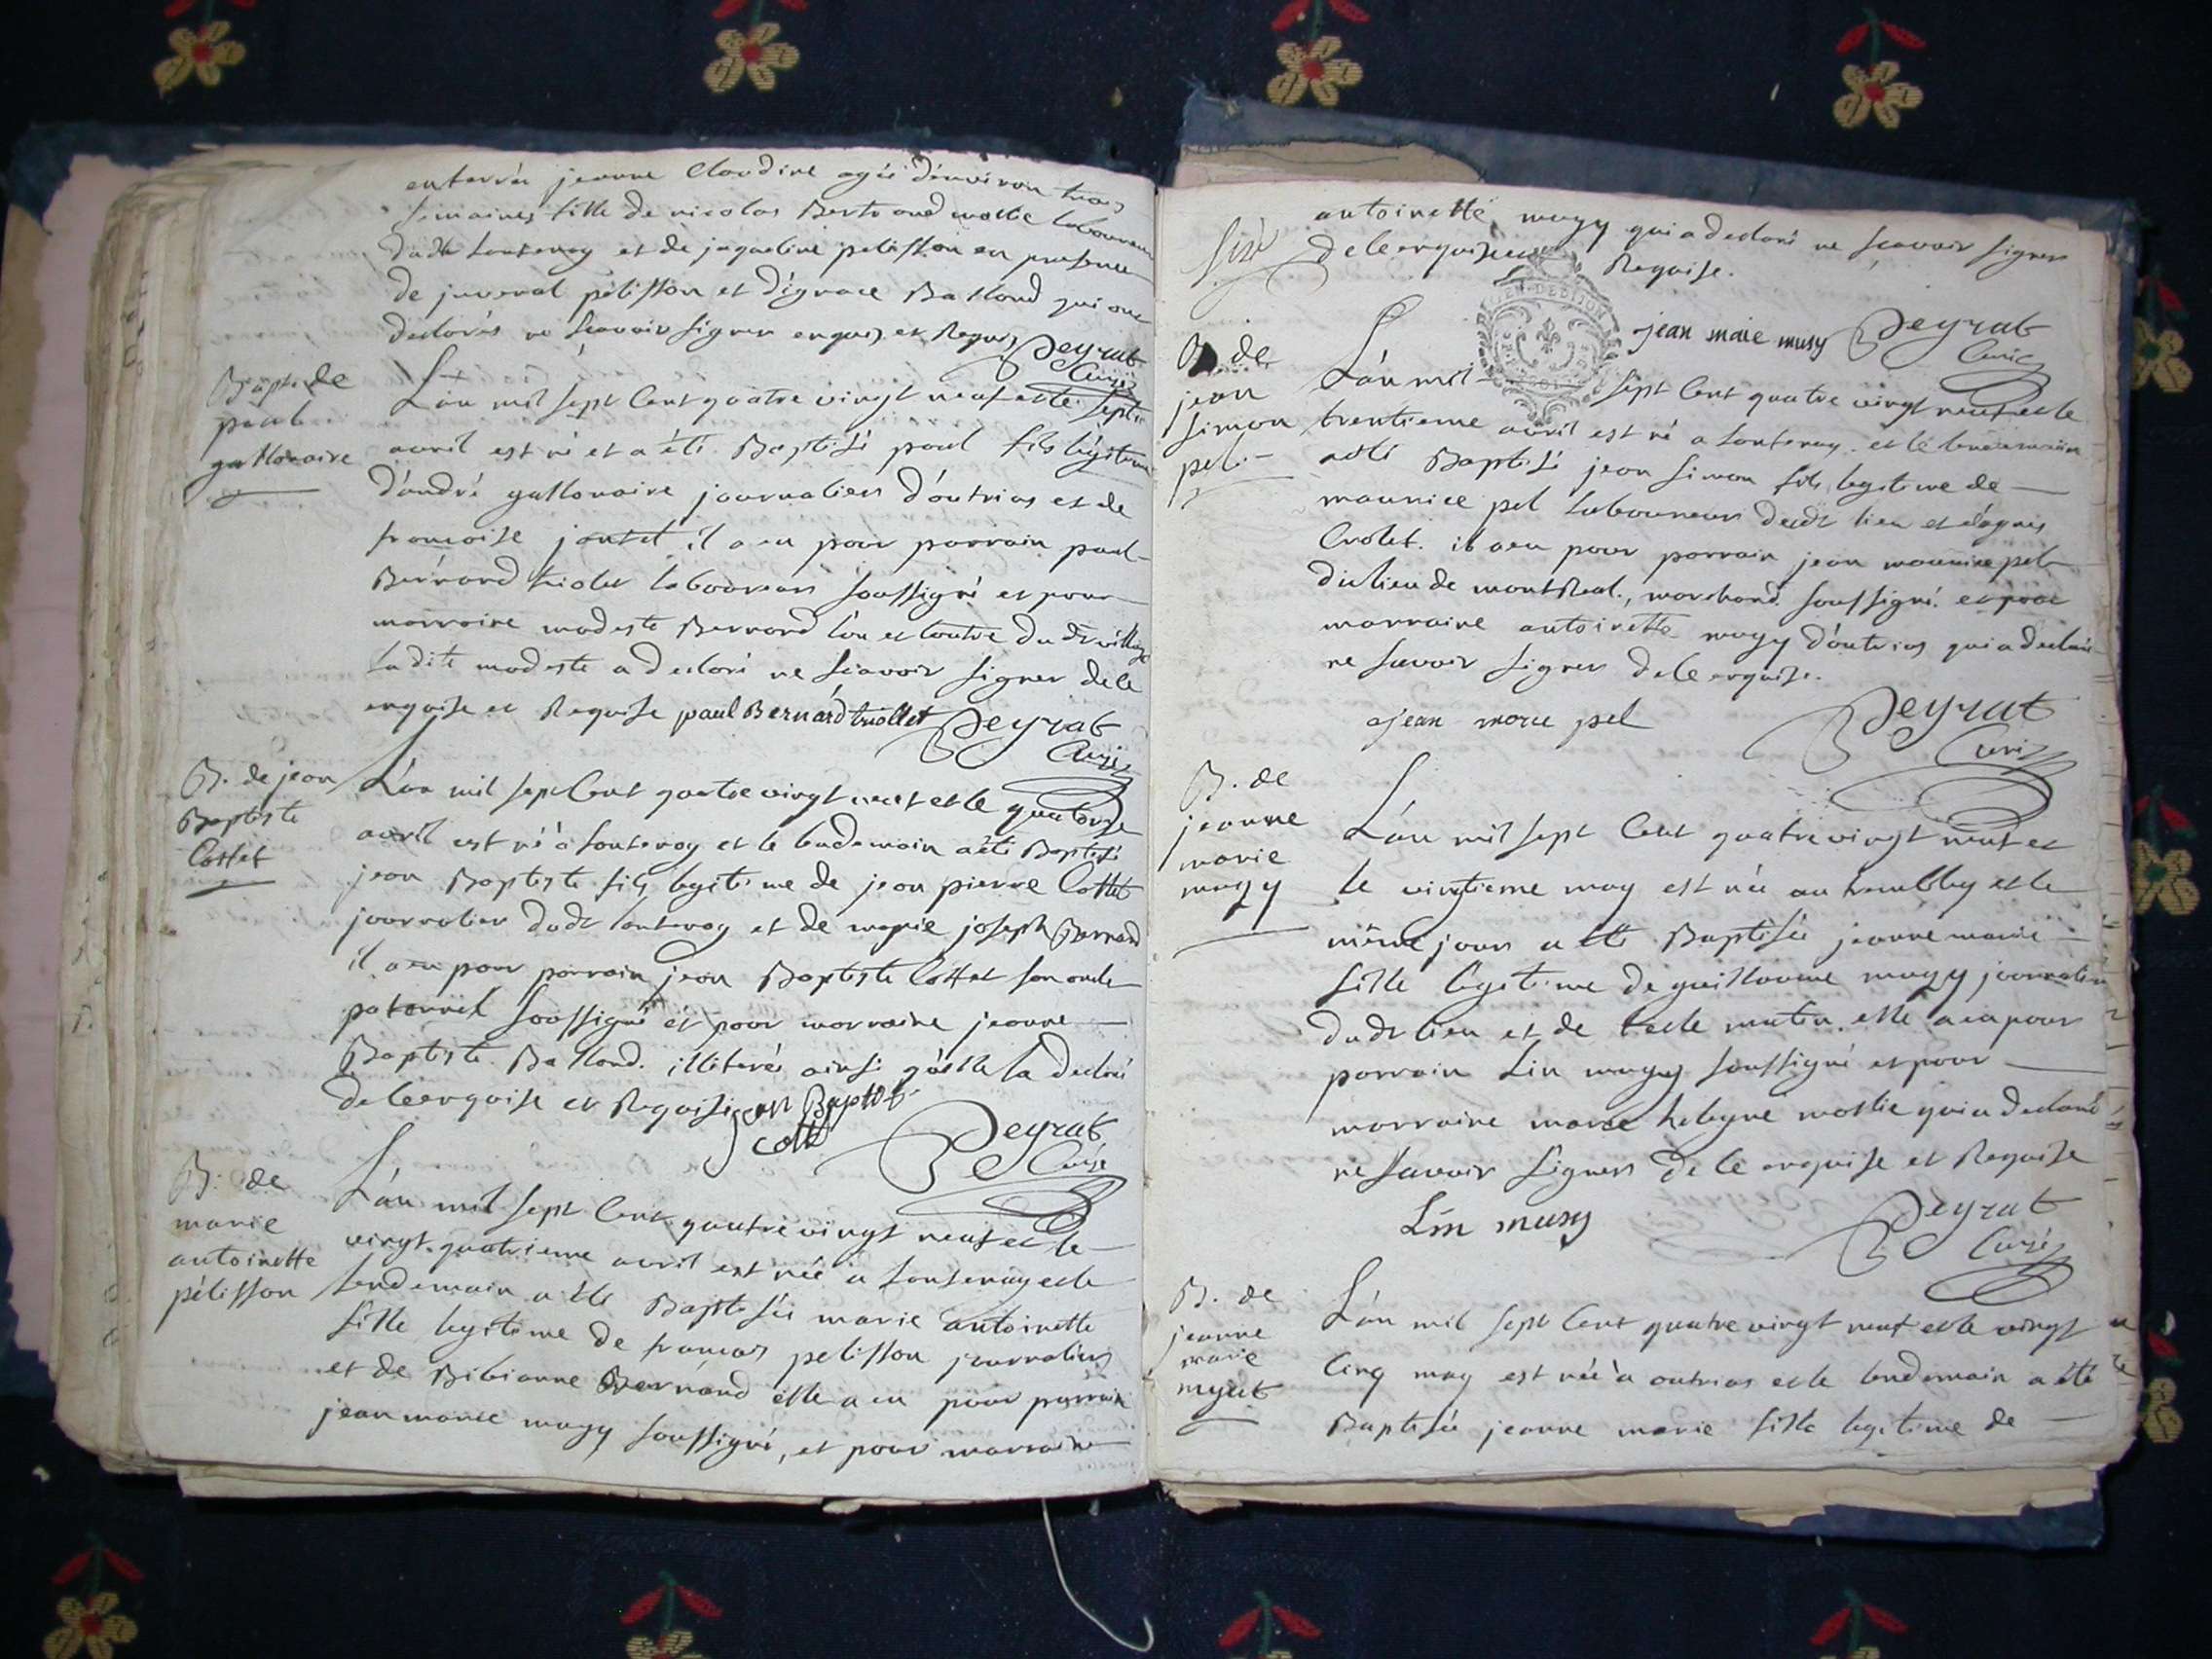 enterrée jeanne Claudine agée d'environ trois
semaines fille de nicolas Bertrand laboureur
dudt et de jaqueline pelisson en presence
de juvenal pelisson et d'ignace Balland qui ont
declarés ne sçavoir signer enquis et Requis Peyrat
Curé
Bapt. de
paul
gallonaire
L'an mil sept Cent quatre vingt neuf et le sept
avril est né et a été Baptisé paul fils légitime
d'andré gallonaire journalier d'outrias et de
françoise joutet il a eu pour parrain paul
Bernard triolet laboureur soussigné et pour
marraine modeste Bernard l'un et l'autre du dt village
ladite modeste a declaré ne sçavoir signer de ce
enquise et Requise paul Bernard triollet Peyrat
Curé
B. de jean
Baptiste
Cottet
L'an mil sept Cent quatre vingt neuf et le quatorze
avril est né à et le lendemain a été Baptisé
jean Baptiste fils legitime de jean pierre Cottet
journalier dudt et de marie joseph Bernard
il a eu pour parrain jean Baptiste Cottet son oncle
paternel soussigné et pour marraine jeanne
Baptiste Balland illiterée ainsi qu'elle l'a declaré
de ce enquise et Requise jean Baptiste
Peyrat
Curé
B. de
marie
antoinette
pélisson
L'an mil sept Cent quatre vingt neuf et le
vingt quatrieme avril est née a et le
lendemain a été Baptisée marie antoinette
fille legitime de françois pelisson journalier
et de Bibianne Bernard elle a eu pour parrain
jean marie mugy soussigné, et pour marraine
antoinette mugy qui a declaré ne sçavoir signer
de ce enquise Requise.
jean marie musy Peyrat
Curé
B. de
jean
simon
pel
L'an mil sept Cent quatre vingt neuf et le
trentieme avril est né a et le lendemain
a été Baptisé jean simon fils legitime de
maurice pel laboureur dudt lieu et d'agnes
Crolet. il a eu pour parrain jean maurice pel
du lieu de montReal, marchand soussigné et pour
marraine antoinette mugy d'outrias qui a declaré
ne savoir signer de ce enquise.
jean pel Peyrat
Curé
B. de
jeanne
marie
mugy
L'an mil sept Cent quatre vingt neuf et
le vingtieme may est née au et le
même jour a été Baptisée jeanne marie
fille legitime de guillaume mugy journalier
dudt lieu et de elle a eu pour
parrain Lin mugy soussigné et pour
marraine marie qui a declaré
ne savoir signer de ce enquise et Requise
Lin musy Peyrat
Curé
B. de
jeanne
marie
L'an mil sept Cent quatre vingt neuf et le vingt
Cinq may est née à outrias et le lendemain a été
Baptisée jeanne marie fille legitime de